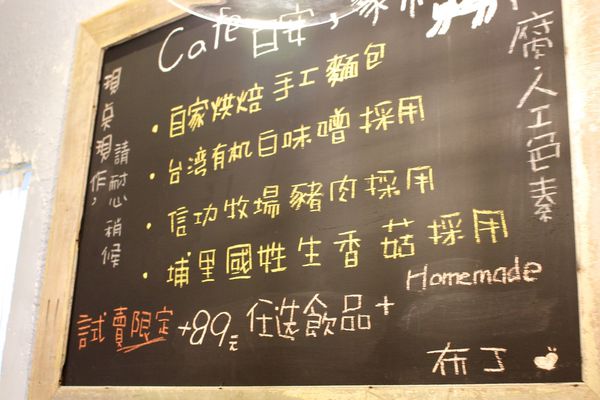 Cafe 日安,
腐.人工色素
現点現作,
請耐心稍候
・自家烘焙手工麵包
・台湾有机白味噌採用
・信功牧場豬肉採用
・埔里國姓生香菇採用
試賣限定+89元任选飲品+Homemade
布丁